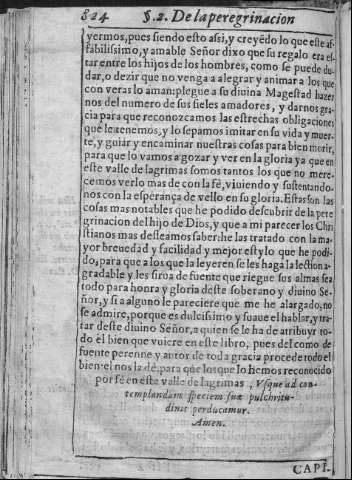 824 §.2. De la peregrinacion
yermos, pues siendo esto assi, y creyẽdo lo que este af-
fabilissimo, y amable Señor dixo que su regalo era es-
tar entre los hijos de los hombres, como se puede du-
dar, o dezir que no venga a alegrar y animar a los que
con veras lo aman: plegue a su diuina Magestad hazer
nos del numero de sus fieles amadores, y darnos gra-
cia para que reconozcamos las estrechas obligaciones
que le tenemos, y lo sepamos imitar en su vida y muer-
te, y guiar y encaminar nuestras cosas para bien morir,
para que lo vamos a gozar y ver en la gloria ya que en
este valle de lagrimas somos tantos los que no mere-
cemos verlo mas de con la fè, viuiendo y sustentando-
nos con la esperãça de vello en su gloria. Estas son las
cosas mas notables que he podido descubrir de la pere
grinacion del hijo de Dios, y que a mi parecer los Chri
stianos mas desseamos saber: he las tratado con la ma-
yor breuedad y facilidad y mejor estylo que he podi-
do, para que a los que la leyeren se les haga la lection a-
gradable y les sirua de fuente que riegue sus almas sea
todo para honra y gloria deste soberano y diuino Se-
ñor, y si a alguno le pareciere que me he alargado, no
se admire, porque es dulcissimo y suaue el hablar, y tra-
tar deste diuino Señor, a quien se le ha de atribuyr to-
do el bien que vuiere en este libro, pues del como de
fuente perenne y autor de toda gracia procede todo el
bien: el nos la dè, para que los que lo hemos reconocido
por fè en este valle de lagrimas, Vsque ad con-
templandam speciem suæ pulchritu-
dinis perducamur.
Amen.
CAPI-